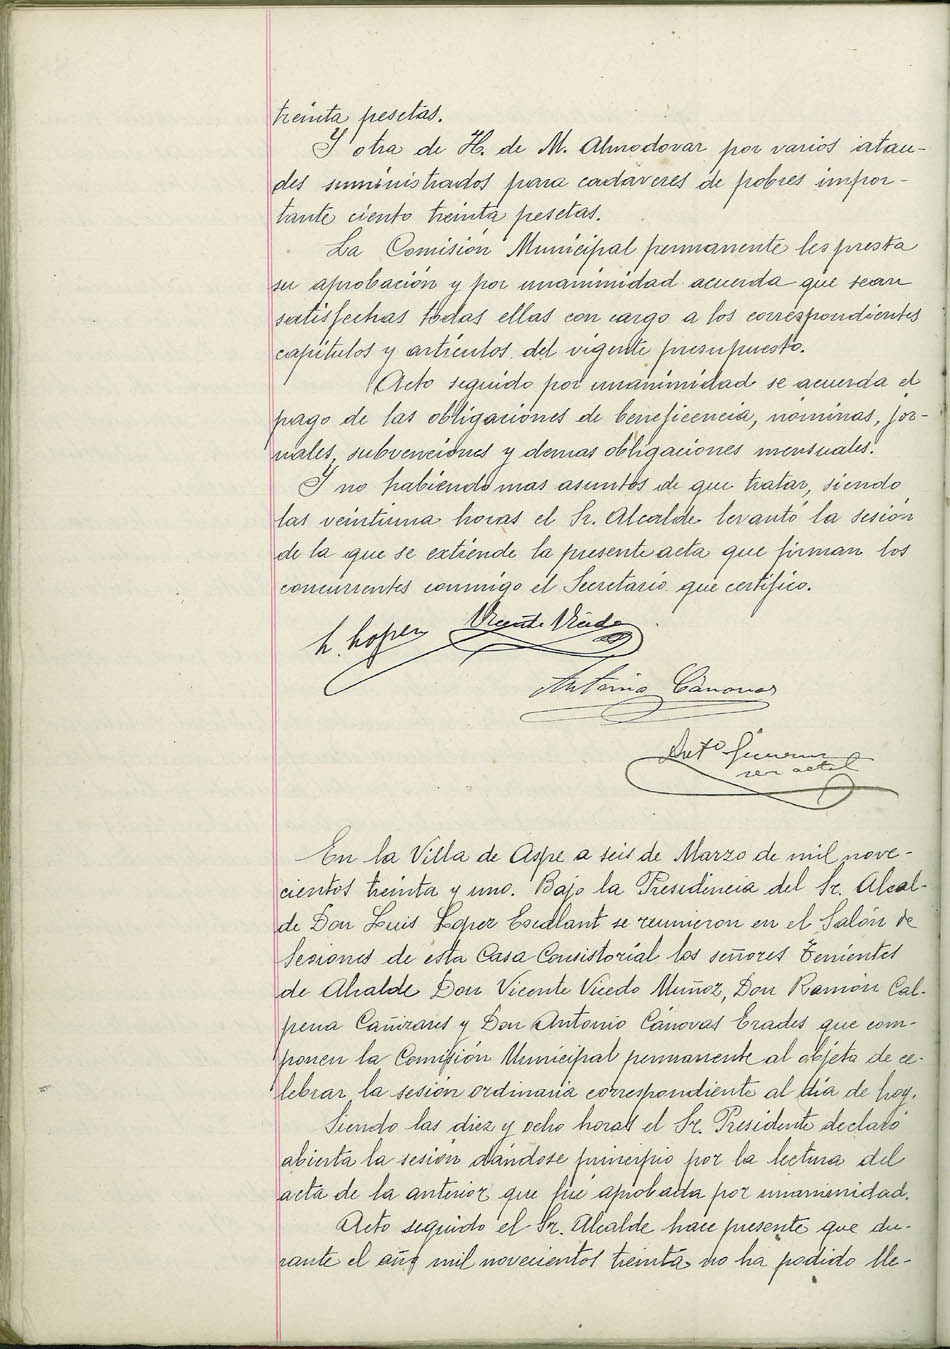 treinta pesetas.
Y otra de H. de M. Almodovar por varios atau-
des suministrados para cadaveres de pobres impor-
tante ciento treinta pesetas.
La Comisión Municipal permanente les presta
su aprobación y por unanimidad acuerda que sean
satisfechas todas ellas con cargo a los correspondientes
capítulos y artículos del vigente presupuesto.
Acto seguido por unanimidad se acuerda el
pago de las obligaciones de beneficencia, nóminas, jor-
nales, subvenciones y demas obligaciones mensuales.
Y no habiendo mas asuntos de que tratar, siendo
las veintiuna horas el Sr. Alcalde levantó la sesión
de la que se extiende la presente acta que firman los
concurrentes conmigo el Secretario que certifico.
L. Lopez Vicente Vicedo
Antonio Cánovas
Anto
En la Villa de Aspe a seis de Marzo de mil nove-
cientos treinta y uno. Bajo la Presidencia del Sr. Alcal-
de Don Luis López Escalant se reunieron en el Salón de
Sesiones de esta Casa Consistorial los señores Tenientes
de Alcalde Don Vicente Vicedo Muñoz, Don Ramón Cal-
pena Cañizares y Don Antonio Cánovas Erades que com-
ponen la Comisión Municipal permanente al objeto de ce-
lebrar la sesión ordinaria correspondiente al día de hoy.
Siendo las diez y ocho horas el Sr. Presidente declaró
abierta la sesión dándose principio por la lectura del
acta de la anterior que fué aprobada por unamenidad.
Acto seguido el Sr. Alcalde hace presente que du-
rante el año mil novecientos treinta no ha podido lle-